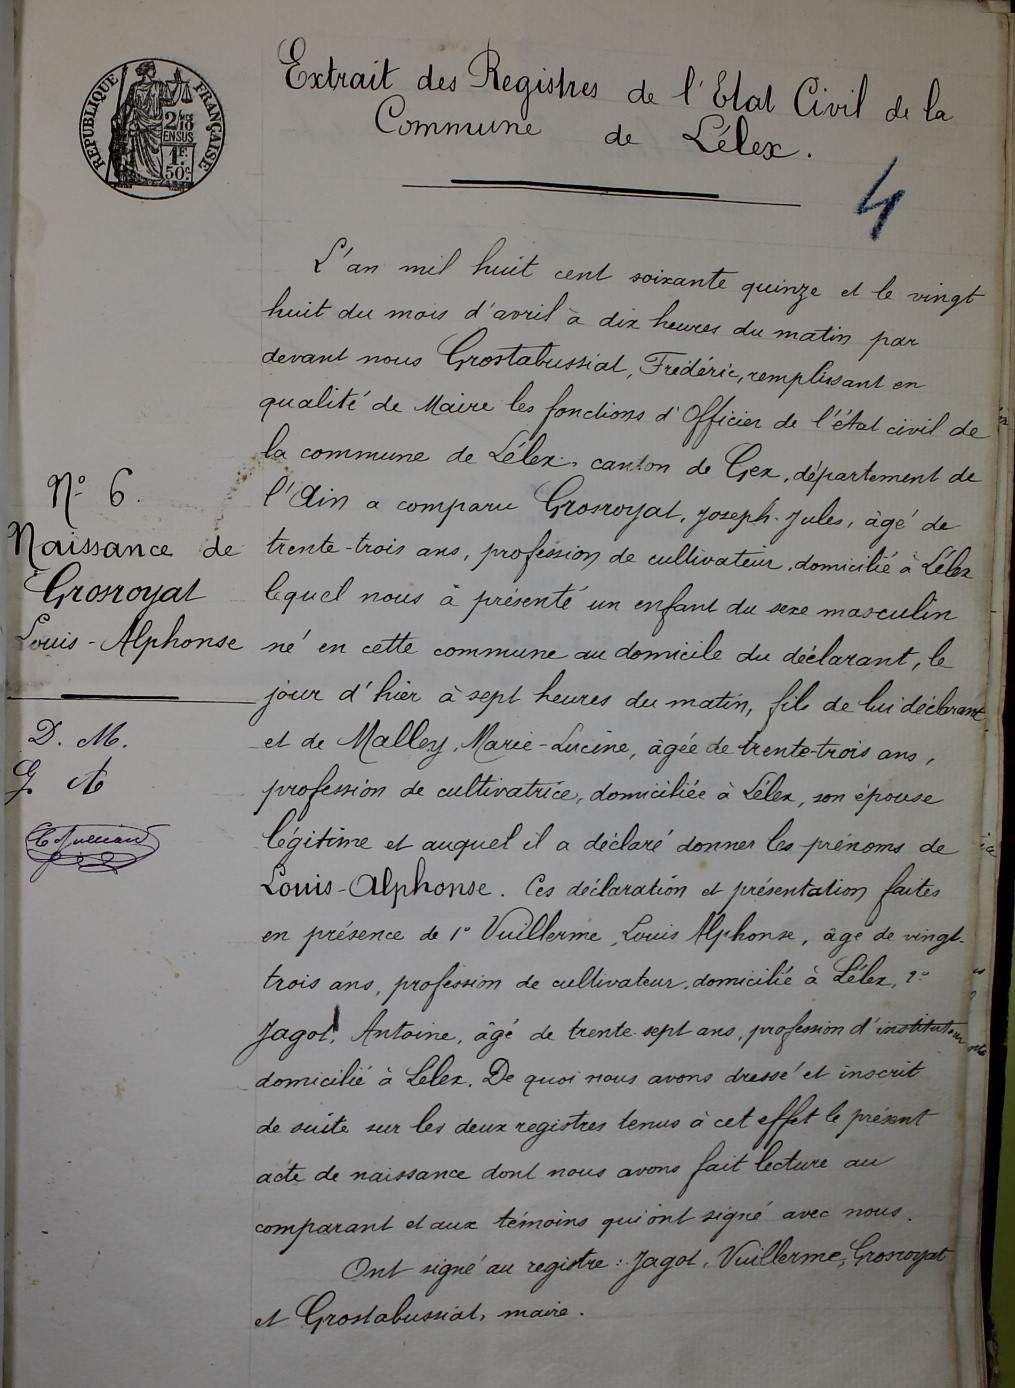 RÉPUBLIQUE FRANÇAISE
2/10
EN SUS
1F
50c
Extrait des Registres de l'Etat Civil de la
Commune de Lélex.
4
L'an mil huit cent soixante quinze et le vingt
huit du mois d'avril à dix heures du matin par
devant nous Grostabussiat, Frédéric, remplissant en
qualité de Maire les fonctions d'Officier de l'état civil de
la commune de Lélex, canton de Gex, département de
l'Ain a comparu Grosroyat, Joseph-Jules, âgé de
trente-trois ans, profession de cultivateur, domicilié à Lélex
lequel nous à présenté un enfant du sexe masculin
né en cette commune au domicile du déclarant, le
jour d'hier à sept heures du matin, fils de lui déclarant
et de Malley, Marie-Lucine, âgée de trente-trois ans,
profession de cultivatrice, domiciliée à Lélex, son épouse
légitime et auquel il a déclaré donner les prénoms de
Louis-Alphonse. Ces déclaration et présentation faites
en présence de 1º Vuillerme, Louis Alphonse, âgé de vingt-
trois ans, profession de cultivateur, domicilié à Lélex, 2º
Jagot, Antoine, âgé de trente-sept ans, profession d'instituteur
domicilié à Lélex. De quoi nous avons dressé et inscrit
de suite sur les deux registres tenus à cet effet le présent
acte de naissance dont nous avons fait lecture au
comparant et aux témoins qui ont signé avec nous.
Ont signé au registre : Jagot, Vuillerme, Grosroyat
et Grostabussiat, maire.
Nº 6.
Naissance de
Grosroyat
Louis-Alphonse
D. M.